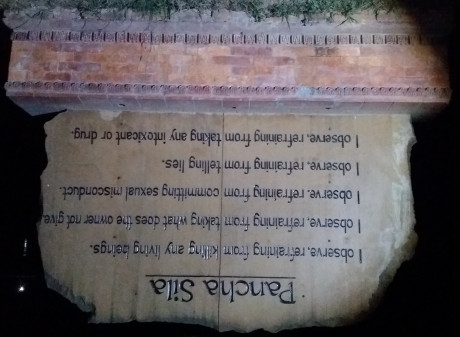 Pancha Sila
I observe, refraining from killing any living beings.
I observe, refraining from taking what does the owner not give
I observe, refraining from committing sexual misconduct.
I observe, refraining from telling lies.
I observe, refraining from taking any intoxicant or drug.